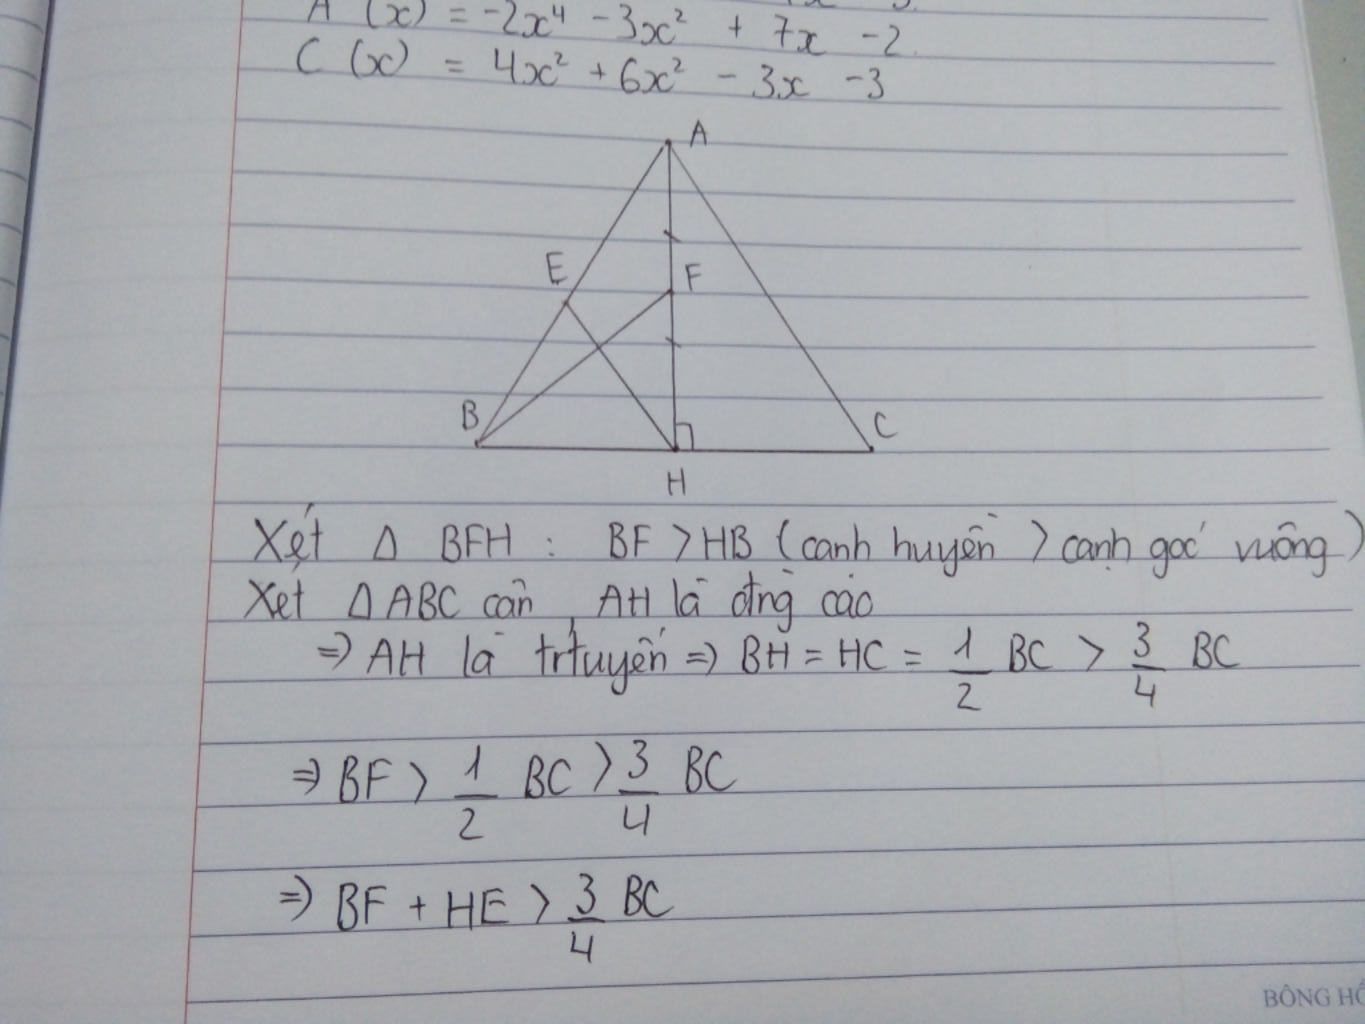 A (x) = -2x⁴ - 3x² + 7x - 2
C (x) = 4x² + 6x² - 3x - 3
A
E
F
B
C
H
Xét Δ BFH : BF > HB (cạnh huyền > cạnh góc vuông)
Xét Δ ABC cân, AH là đng cáo
⇒ AH là tr tuyến ⇒ BH = HC = 1/2 BC > 3/4 BC
⇒ BF > 1/2 BC > 3/4 BC
⇒ BF + HE > 3/4 BC